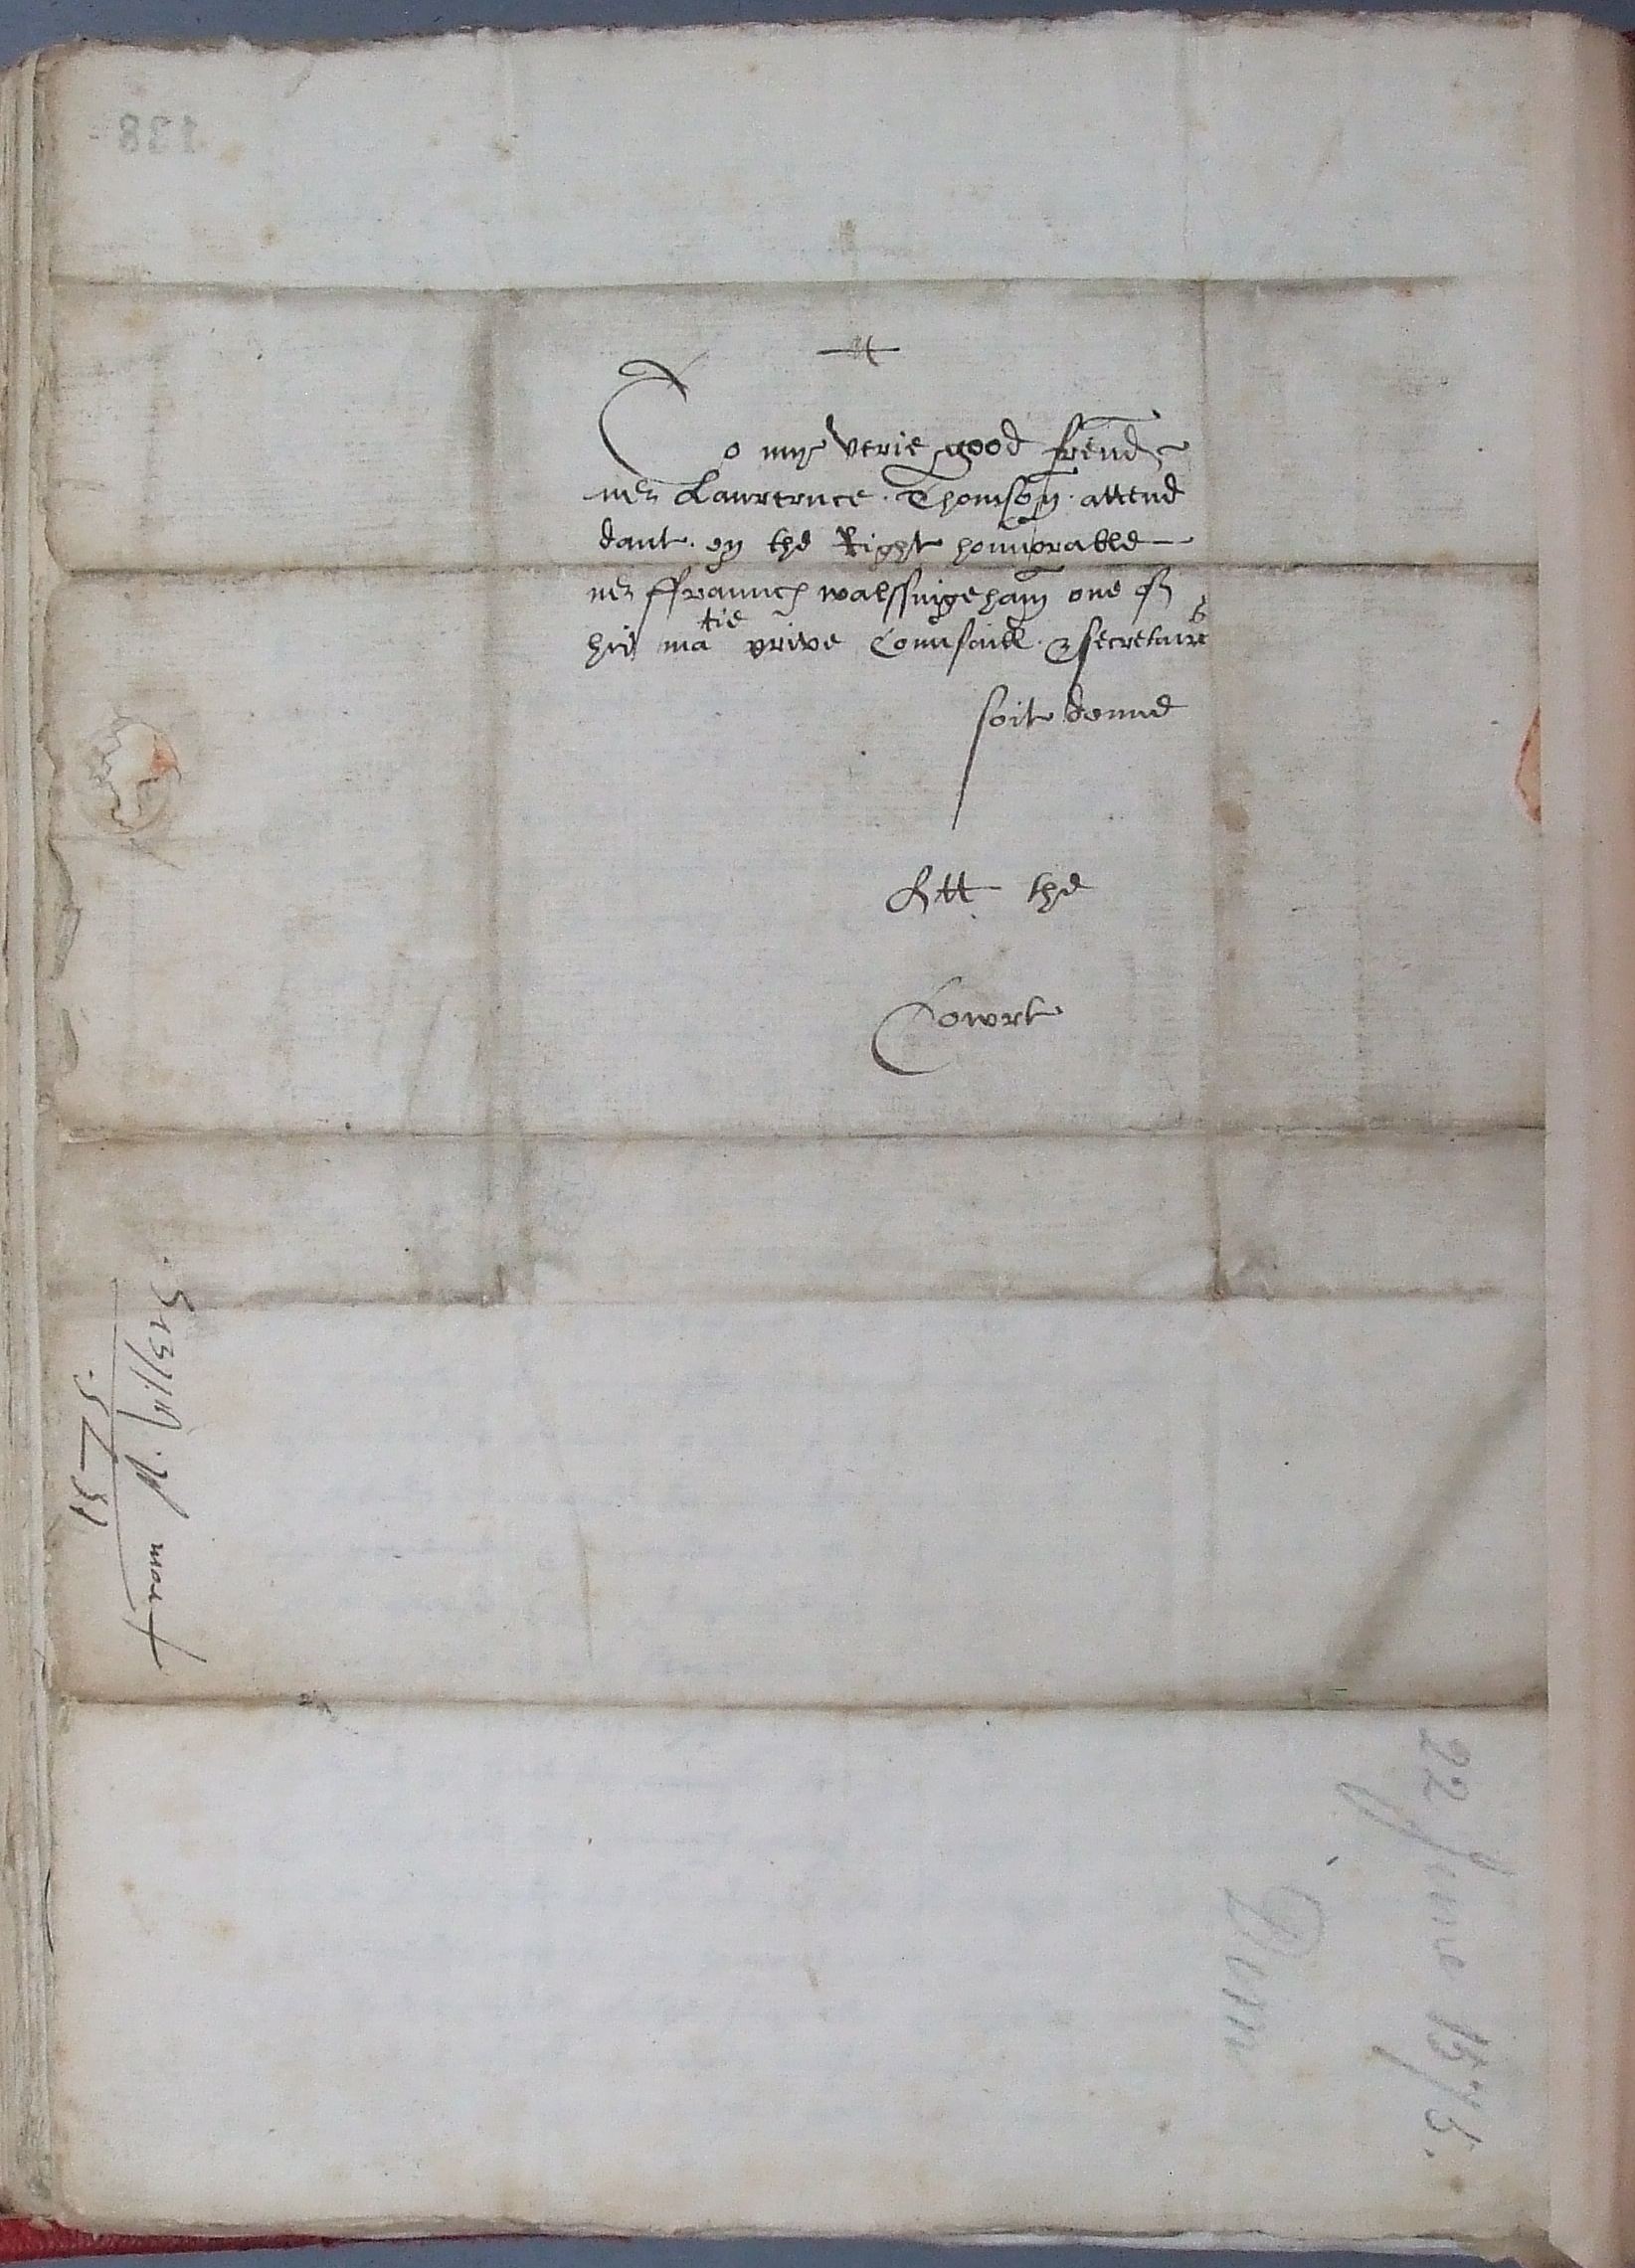 To my verie good frend
mr Lawrence . Thomson . attend
dant . on the Right honnorable
mr ffraunc walssingeham one of
hir matie prive Counsaill . & secretaire
soit donne
Att the
Cowrt
from
22 June 1575.
Dunn
138